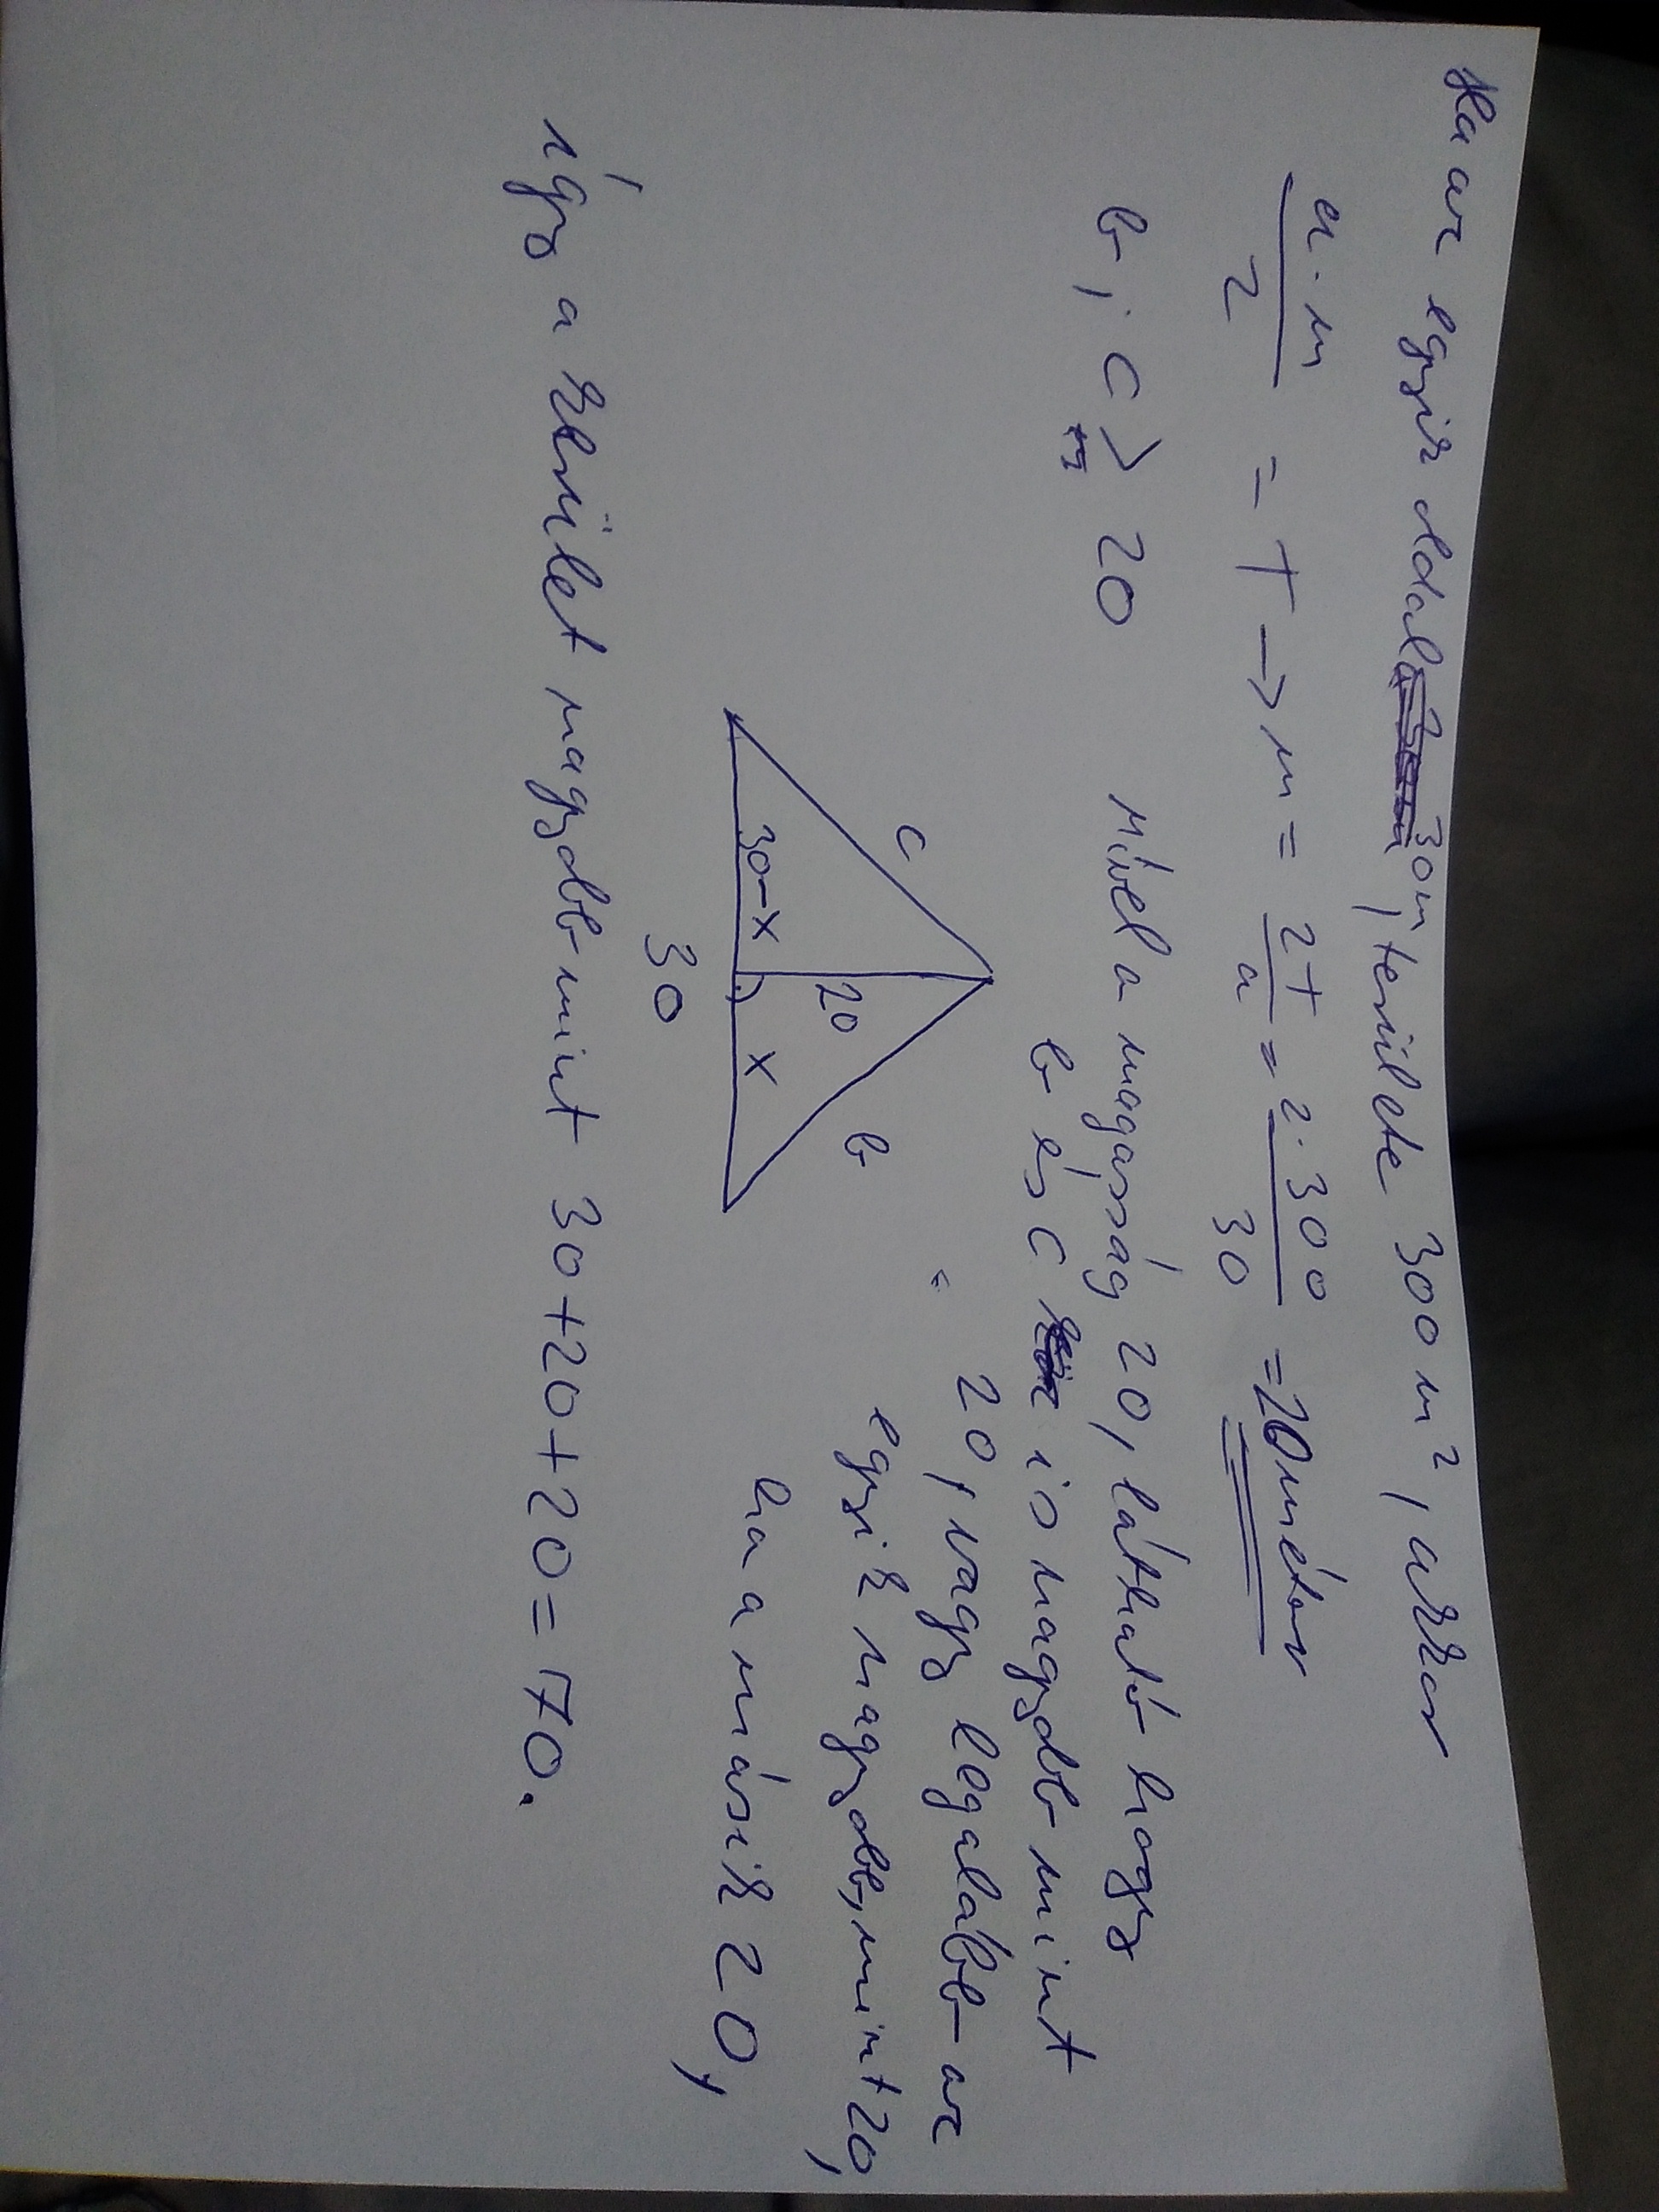 Ha az egyik oldal 30m, területe 300 m², akkor
a·m/2 = T → m = 2T/a = 2·300/30 = 20 méter
b, c ≥ 20 Mivel a magasság 20, látható hogy
b és c is nagyobb mint
20, vagy legalább az
egyik nagyobb, mint 20,
ha a másik 20,
c
b
20
30-x
x
30
így a kerület nagyobb mint 30+20+20=70.